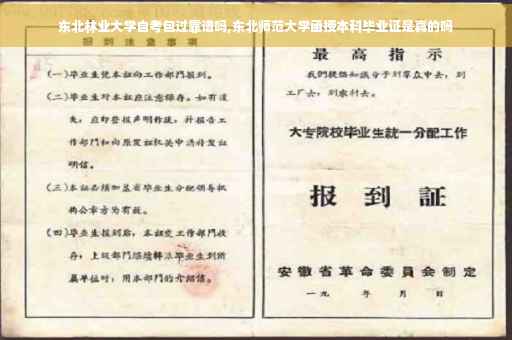 东北林业大学自考包过靠谱吗,东北师范大学函授本科毕业证是真的吗
报到注意事项
(一)毕业生凭本证向工作部门报到。
(二)毕业生对本证应注意保存。如有遗
失,应即登报声明作废,并报告工
作部门和向原发证机关申请补发证
明信。
(三)本证必须加盖省毕业生分配领导机
构公章方为有效。
(四)毕业生报到后,本证交工作部门收
存;上级部门继续转派毕业生到所
属单位时,用本部门的介绍信。
最高指示
我们提倡知识分子到羣众中去,到
工厂去,到农村去。
大专院校毕业生统一分配工作
报到証
安徽省革命委員会制定
一九 年 月 日